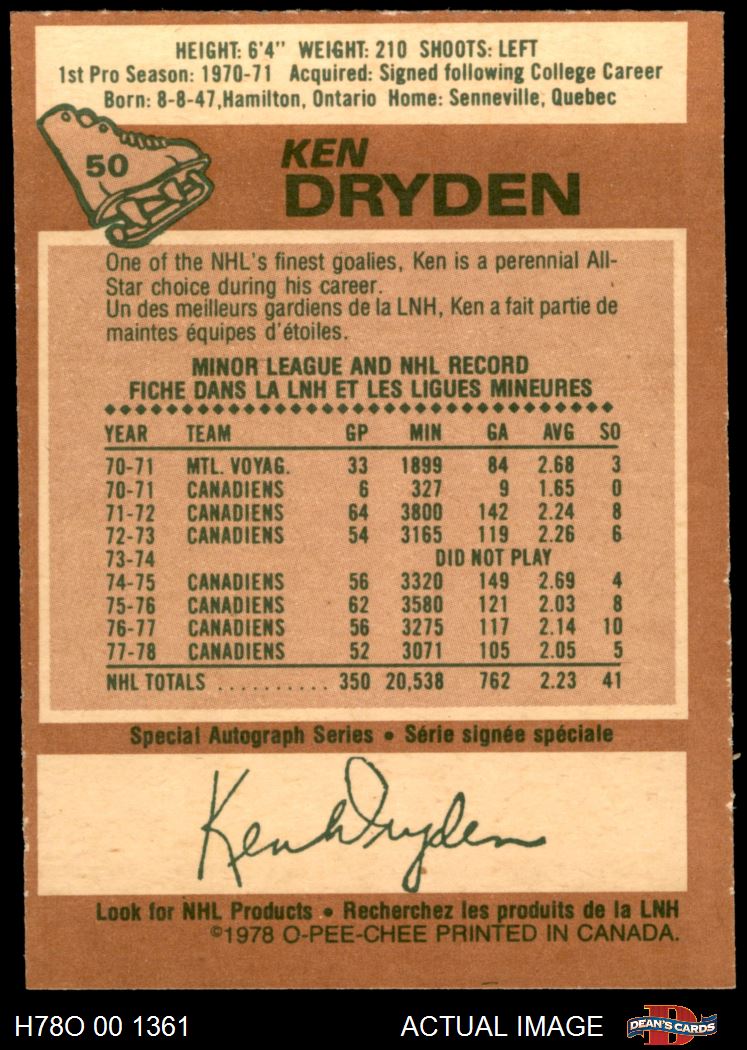 HEIGHT: 6'4" WEIGHT: 210 SHOOTS: LEFT
1st Pro Season: 1970-71 Acquired: Signed following College Career
Born: 8-8-47, Hamilton, Ontario Home: Senneville, Quebec
50
KEN
DRYDEN
One of the NHL's finest goalies, Ken is a perennial All-
Star choice during his career.
Un des meilleurs gardiens de la LNH, Ken a fait partie de
maintes équipes d'étoiles.
MINOR LEAGUE AND NHL RECORD
FICHE DANS LA LNH ET LES LIGUES MINEURES
YEAR TEAM GP MIN GA AVG SO
70-71 MTL. VOYAG. 33 1899 84 2.68 3
70-71 CANADIENS 6 327 9 1.65 0
71-72 CANADIENS 64 3800 142 2.24 8
72-73 CANADIENS 54 3165 119 2.26 6
73-74 DID NOT PLAY
74-75 CANADIENS 56 3320 149 2.69 4
75-76 CANADIENS 62 3580 121 2.03 8
76-77 CANADIENS 56 3275 117 2.14 10
77-78 CANADIENS 52 3071 105 2.05 5
NHL TOTALS .......... 350 20,538 762 2.23 41
Special Autograph Series • Série signée spéciale
Ken Dryden
Look for NHL Products • Recherchez les produits de la LNH
©1978 O-PEE-CHEE PRINTED IN CANADA.
H78O 00 1361 ACTUAL IMAGE D DEAN'S CARDS